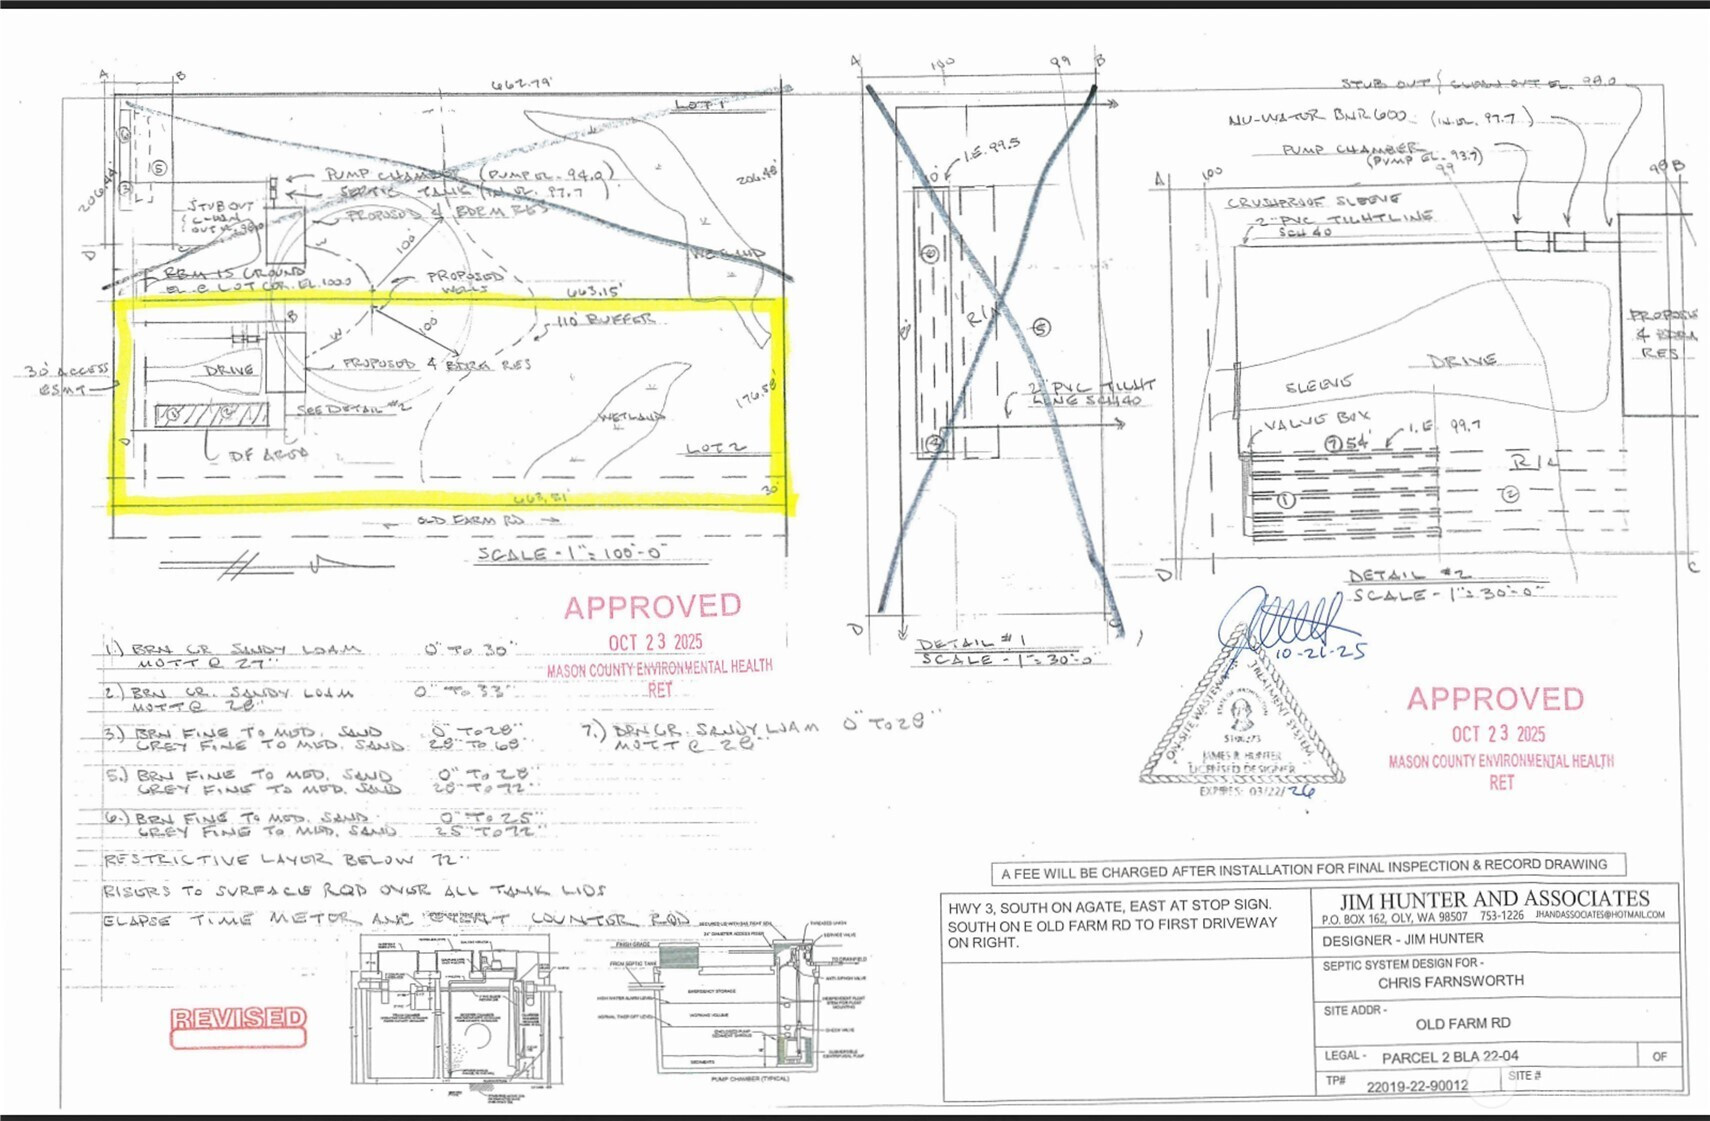 A
B
662.79'
LOT 1
206.48'
PUMP CHAMBER (PUMP EL. - 94.0)
SEPTIC TANK (IN. EL. 97.7)
STUB OUT
PROPOSED 4 BDRM RES
100'
WETLAND
D
BBM IS GROUND
EL. @ LOT COR. EL. 100.0
PROPOSED
WELLS
663.15'
B
W
100'
110' BUFFER
30' ACCESS
ESMT
DRIVE
PROPOSED 4 BDRM RES
SEE DETAIL #2
176.58'
WETLAND
DF AREA
LOT 2
30'
OLD FARM RD
SCALE - 1" = 100'-0"
A
100
99
B
I.E. 99.5
10'
6
R/A
5
2" PVC TIGHT
LINE SCH 40
D
DETAIL #1
SCALE - 1" = 30'-0"
STUB OUT / CLEAN OUT EL. 98.0
NU-WATER BNR 600 (IN. EL. 97.7)
PUMP CHAMBER
(PUMP EL. - 93.7)
A
100
99
98
B
CRUSHPROOF SLEEVE
2" PVC TIGHTLINE
SCH 40
PROPOSED
4 BDRM
RES
DRIVE
SLEEVE
VALVE BOX
7 54'
I.E. 99.7
R/A
1
2
D
C
DETAIL #2
SCALE - 1" = 30'-0"
APPROVED
OCT 23 2025
MASON COUNTY ENVIRONMENTAL HEALTH
RET
1.) BRN GR SANDY LOAM 0" TO 30"
MOTT @ 27"
2.) BRN GR. SANDY LOAM 0" TO 33"
MOTT @ 28"
3.) BRN FINE TO MED. SAND 0" TO 28"
GREY FINE TO MED. SAND 28" TO 68"
5.) BRN FINE TO MED. SAND 0" TO 28"
GREY FINE TO MED. SAND 28" TO 72"
6.) BRN FINE TO MED. SAND 0" TO 25"
GREY FINE TO MED. SAND 25" TO 72"
7.) BRN GR. SANDY LOAM 0" TO 28"
MOTT @ 28"
RESTRICTIVE LAYER BELOW 72"
RISERS TO SURFACE RQD OVER ALL TANK LIDS
ELAPSE TIME METER AND EVENT COUNTER RQD
10-21-25
ON-SITE WASTEWATER TREATMENT SYSTEM
STATE OF WASHINGTON
5100273
JAMES R. HUNTER
LICENSED DESIGNER
EXPIRES: 03/22/26
APPROVED
OCT 23 2025
MASON COUNTY ENVIRONMENTAL HEALTH
RET
REVISED
24" DIAMETER ACCESS RISER
FINISH GRADE
FROM SEPTIC TANK
TO DRAINFIELD
EMERGENCY STORAGE
ANTI-SIPHON VALVE
HIGH WATER ALARM LEVEL
WORKING VOLUME
CHECK VALVE
SEDIMENTS
PUMP CHAMBER (TYPICAL)
A FEE WILL BE CHARGED AFTER INSTALLATION FOR FINAL INSPECTION & RECORD DRAWING
HWY 3, SOUTH ON AGATE, EAST AT STOP SIGN.
SOUTH ON E OLD FARM RD TO FIRST DRIVEWAY
ON RIGHT.
JIM HUNTER AND ASSOCIATES
P.O. BOX 162, OLY, WA 98507 753-1226 JHANDASSOCIATES@HOTMAIL.COM
DESIGNER - JIM HUNTER
SEPTIC SYSTEM DESIGN FOR -
CHRIS FARNSWORTH
SITE ADDR -
OLD FARM RD
LEGAL - PARCEL 2 BLA 22-04
OF
TP# 22019-22-90012
SITE #